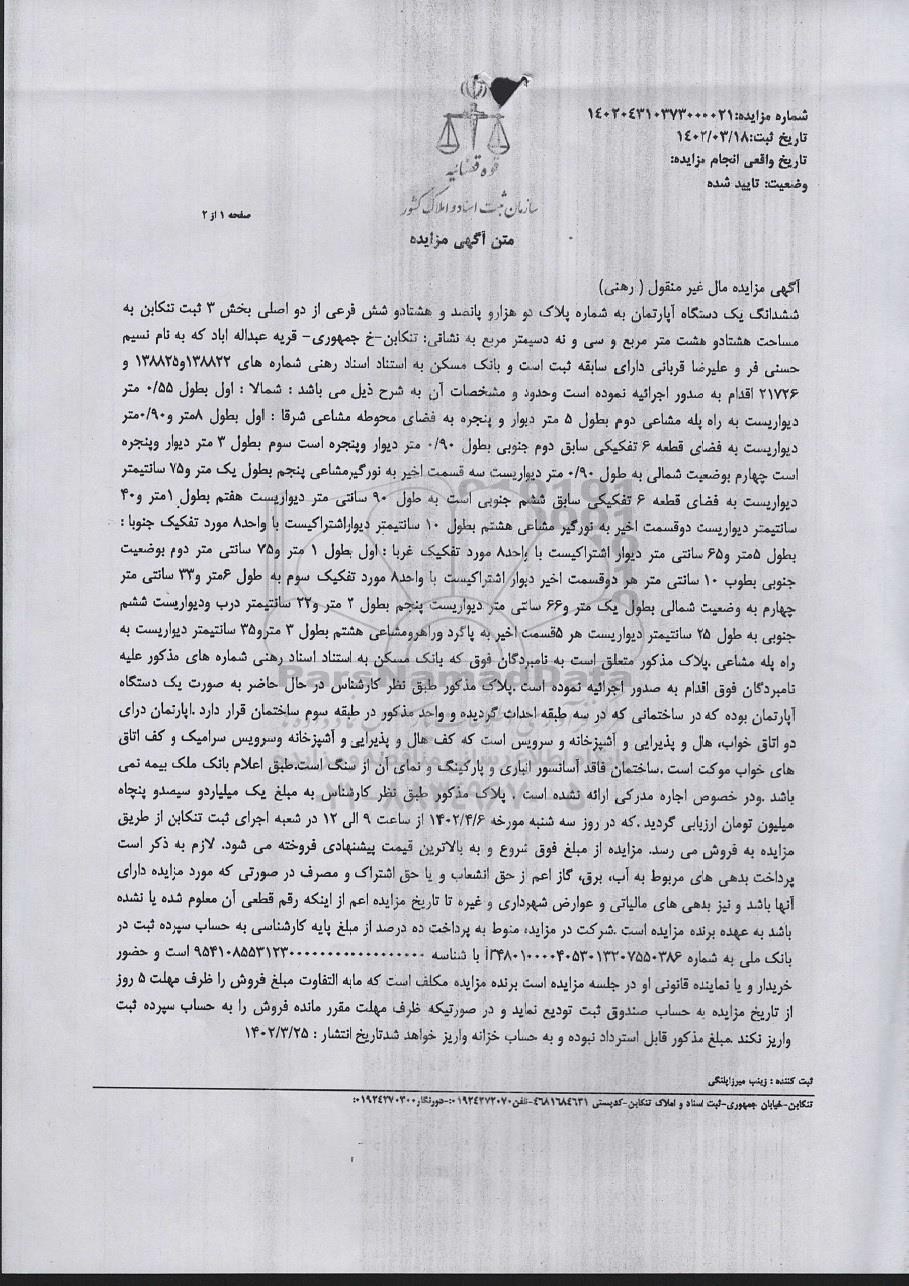 شماره مزایده:۱٤۰۲۰٤۳۱۰۳۷۳۰۰۰۰۲۱
تاریخ ثبت:۱٤۰۲/۰۳/۱۸
تاریخ واقعی انجام مزایده:
وضعیت: تایید شده
قوه قضائیه
سازمان ثبت اسناد و املاک کشور
صفحه ۱ از ۲
متن آگهی مزایده
آگهی مزایده مال غیر منقول ( رهنی)
ششدانگ یک دستگاه آپارتمان به شماره پلاک دو هزارو پانصد و هشتادو شش فرعی از دو اصلی بخش ۳ ثبت تنکابن به
مساحت هشتادو هشت متر مربع و سی و نه دسیمتر مربع به نشانی: تنکابن-خ جمهوری- قریه عبداله اباد که به نام نسیم
حسنی فر و علیرضا قربانی دارای سابقه ثبت است و بانک مسکن به استناد اسناد رهنی شماره های ۱۳۸۸۲۲و۱۳۸۸۲۵ و
۲۱۷۲۶ اقدام به صدور اجرائیه نموده است وحدود و مشخصات آن به شرح ذیل می باشد : شمالا : اول بطول ۰/۵۵ متر
دیواریست به راه پله مشاعی دوم بطول ۵ متر دیوار و پنجره به فضای محوطه مشاعی شرقا : اول بطول ۸متر و۰/۹۰متر
دیواریست به فضای قطعه ۶ تفکیکی سابق دوم جنوبی بطول ۰/۹۰ متر دیوار وپنجره است سوم بطول ۳ متر دیوار وپنجره
است چهارم بوضعیت شمالی به طول ۰/۹۰ متر دیواریست سه قسمت اخیر به نورگیرمشاعی پنجم بطول یک متر و۷۵ سانتیمتر
دیواریست به فضای قطعه ۶ تفکیکی سابق ششم جنوبی است به طول ۹۰ سانتی متر دیواریست هفتم بطول ۱متر و۴۰
سانتیمتر دیواریست دوقسمت اخیر به نورگیر مشاعی هشتم بطول ۱۰ سانتیمتر دیواراشتراکیست با واحد۸ مورد تفکیک جنوبا :
بطول ۵متر و۶۵ سانتی متر دیوار اشتراکیست با واحد۸ مورد تفکیک غربا : اول بطول ۱ متر و۷۵ سانتی متر دوم بوضعیت
جنوبی بطوب ۱۰ سانتی متر هر دوقسمت اخیر دیوار اشتراکیست با واحد۸ مورد تفکیک سوم به طول ۶متر و۳۳ سانتی متر
چهارم به وضعیت شمالی بطول یک متر و۶۶ سانتی متر دیواریست پنجم بطول ۲ متر و۲۲ سانتیمتر درب ودیواریست ششم
جنوبی به طول ۲۵ سانتیمتر دیواریست هر ۵قسمت اخیر به پاگرد وراهرومشاعی هشتم بطول ۳ مترو۳۵ سانتیمتر دیواریست به
راه پله مشاعی .پلاک مذکور متعلق است به نامبردگان فوق که بانک مسکن به استناد اسناد رهنی شماره های مذکور علیه
نامبردگان فوق اقدام به صدور اجرائیه نموده است .پلاک مذکور طبق نظر کارشناس در حال حاضر به صورت یک دستگاه
آپارتمان بوده که در ساختمانی که در سه طبقه احداث گردیده و واحد مذکور در طبقه سوم ساختمان قرار دارد .اپارتمان درای
دو اتاق خواب، هال و پذیرایی و آشپزخانه و سرویس است که کف هال و پذیرایی و آشپزخانه وسرویس سرامیک و کف اتاق
های خواب موکت است .ساختمان فاقد آسانسور انباری و پارکینگ و نمای آن از سنگ است.طبق اعلام بانک ملک بیمه نمی
باشد .ودر خصوص اجاره مدرکی ارائه نشده است . پلاک مذکور طبق نظر کارشناس به مبلغ یک میلیاردو سیصدو پنجاه
میلیون تومان ارزیابی گردید .که در روز سه شنبه مورخه ۱۴۰۲/۴/۶ از ساعت ۹ الی ۱۲ در شعبه اجرای ثبت تنکابن از طریق
مزایده به فروش می رسد. مزایده از مبلغ فوق شروع و به بالاترین قیمت پیشنهادی فروخته می شود. لازم به ذکر است
پرداخت بدهی های مربوط به آب، برق، گاز اعم از حق انشعاب و یا حق اشتراک و مصرف در صورتی که مورد مزایده دارای
آنها باشد و نیز بدهی های مالیاتی و عوارض شهرداری و غیره تا تاریخ مزایده اعم از اینکه رقم قطعی آن معلوم شده یا نشده
باشد به عهده برنده مزایده است .شرکت در مزایده منوط به پرداخت ده درصد از مبلغ پایه کارشناسی به حساب سپرده ثبت در
بانک ملی به شماره با شناسه است و حضور
خریدار و یا نماینده قانونی او در جلسه مزایده است برنده مزایده مکلف است که مابه التفاوت مبلغ فروش را ظرف مهلت ۵ روز
از تاریخ مزایده به حساب صندوق ثبت تودیع نماید و در صورتیکه ظرف مهلت مقرر مانده فروش را به حساب سپرده ثبت
واریز نکند .مبلغ مذکور قابل استرداد نبوده و به حساب خزانه واریز خواهد شدتاریخ انتشار : ۱۴۰۲/۳/۲۵
ثبت کننده : زینب میرزاپلنگی
تنکابن-خیابان جمهوری-ثبت اسناد و املاک تنکابن-کدپستی ٤٦۸۱٦۸٤٦۳۱-تلفن۰۱۹۲٤۲۷۲۰۷۰:-دورنگار۰۱۹۲٤۲۷۰۳۰۰:
ParsNamadData